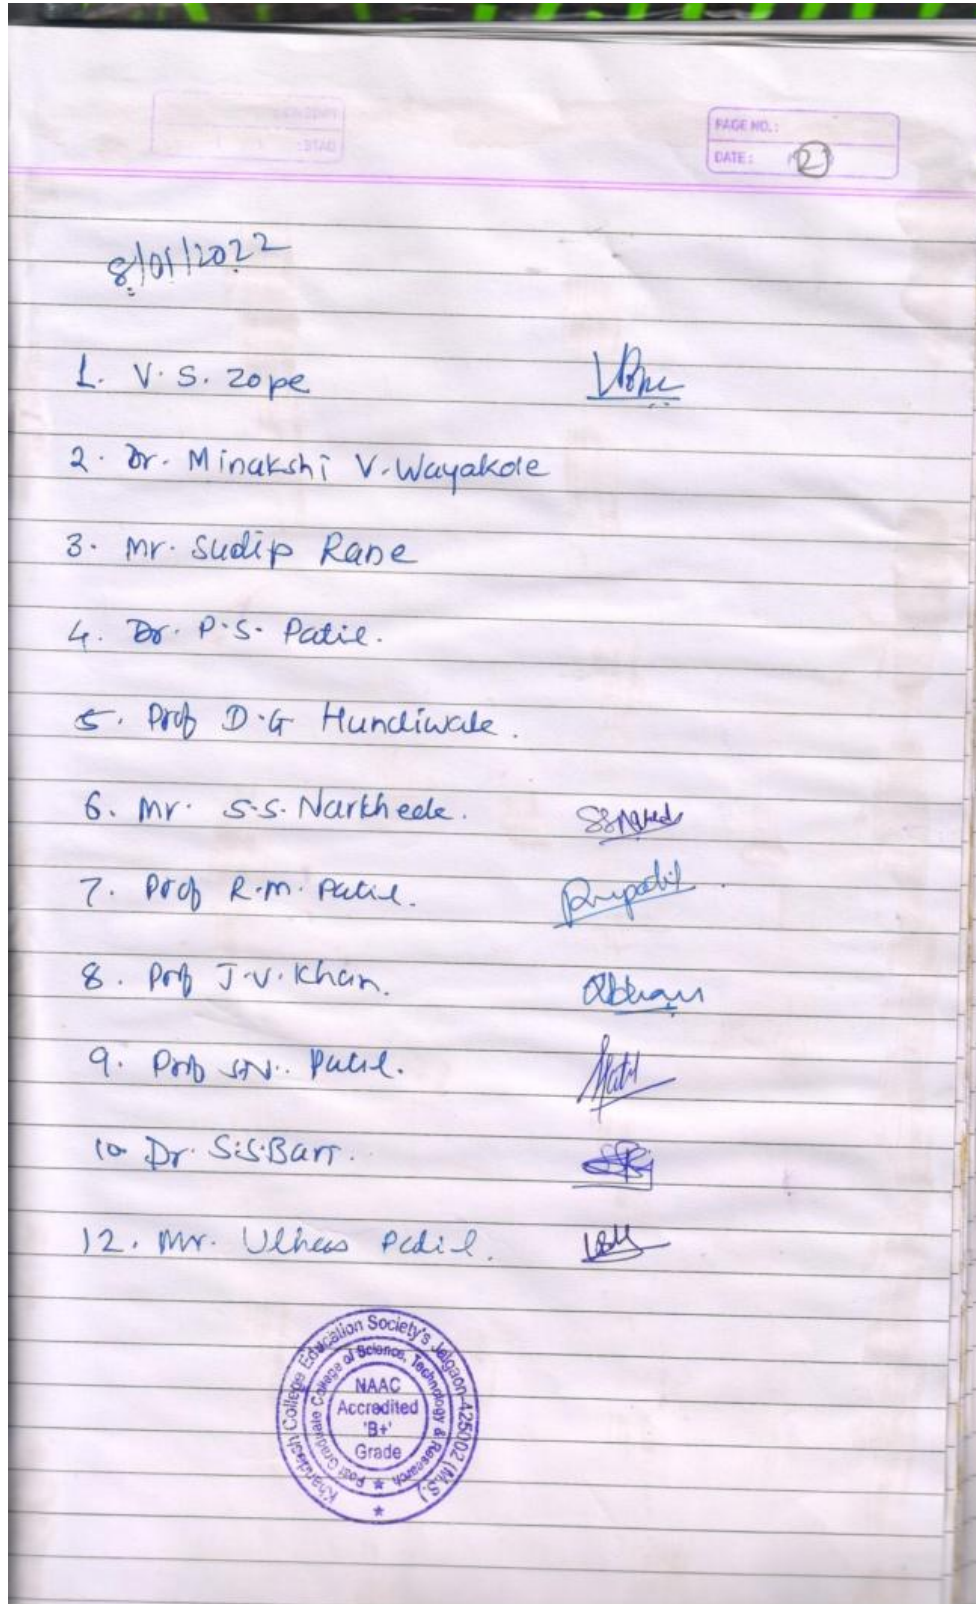 PAGE NO.:
DATE: 2
8/01/2022
1. V. S. Zope
2. Dr. Minakshi V. Wayakole
3. Mr. Sudip Rane
4. Dr. P. S. Patil.
5. Prof D.G Hundiwale.
6. Mr. S.S. Narkhede.
7. Prof R.M. Patil.
8. Prof J.V. Khan.
9. Prof S.N. Patil.
10 Dr. S.S.Bari.
12. Mr. Ulhas Patil.
Khandesh College Education Society's Jalgaon-425002 (M.S.)
Post Graduate College of Science, Technology & Research
NAAC
Accredited
'B+'
Grade